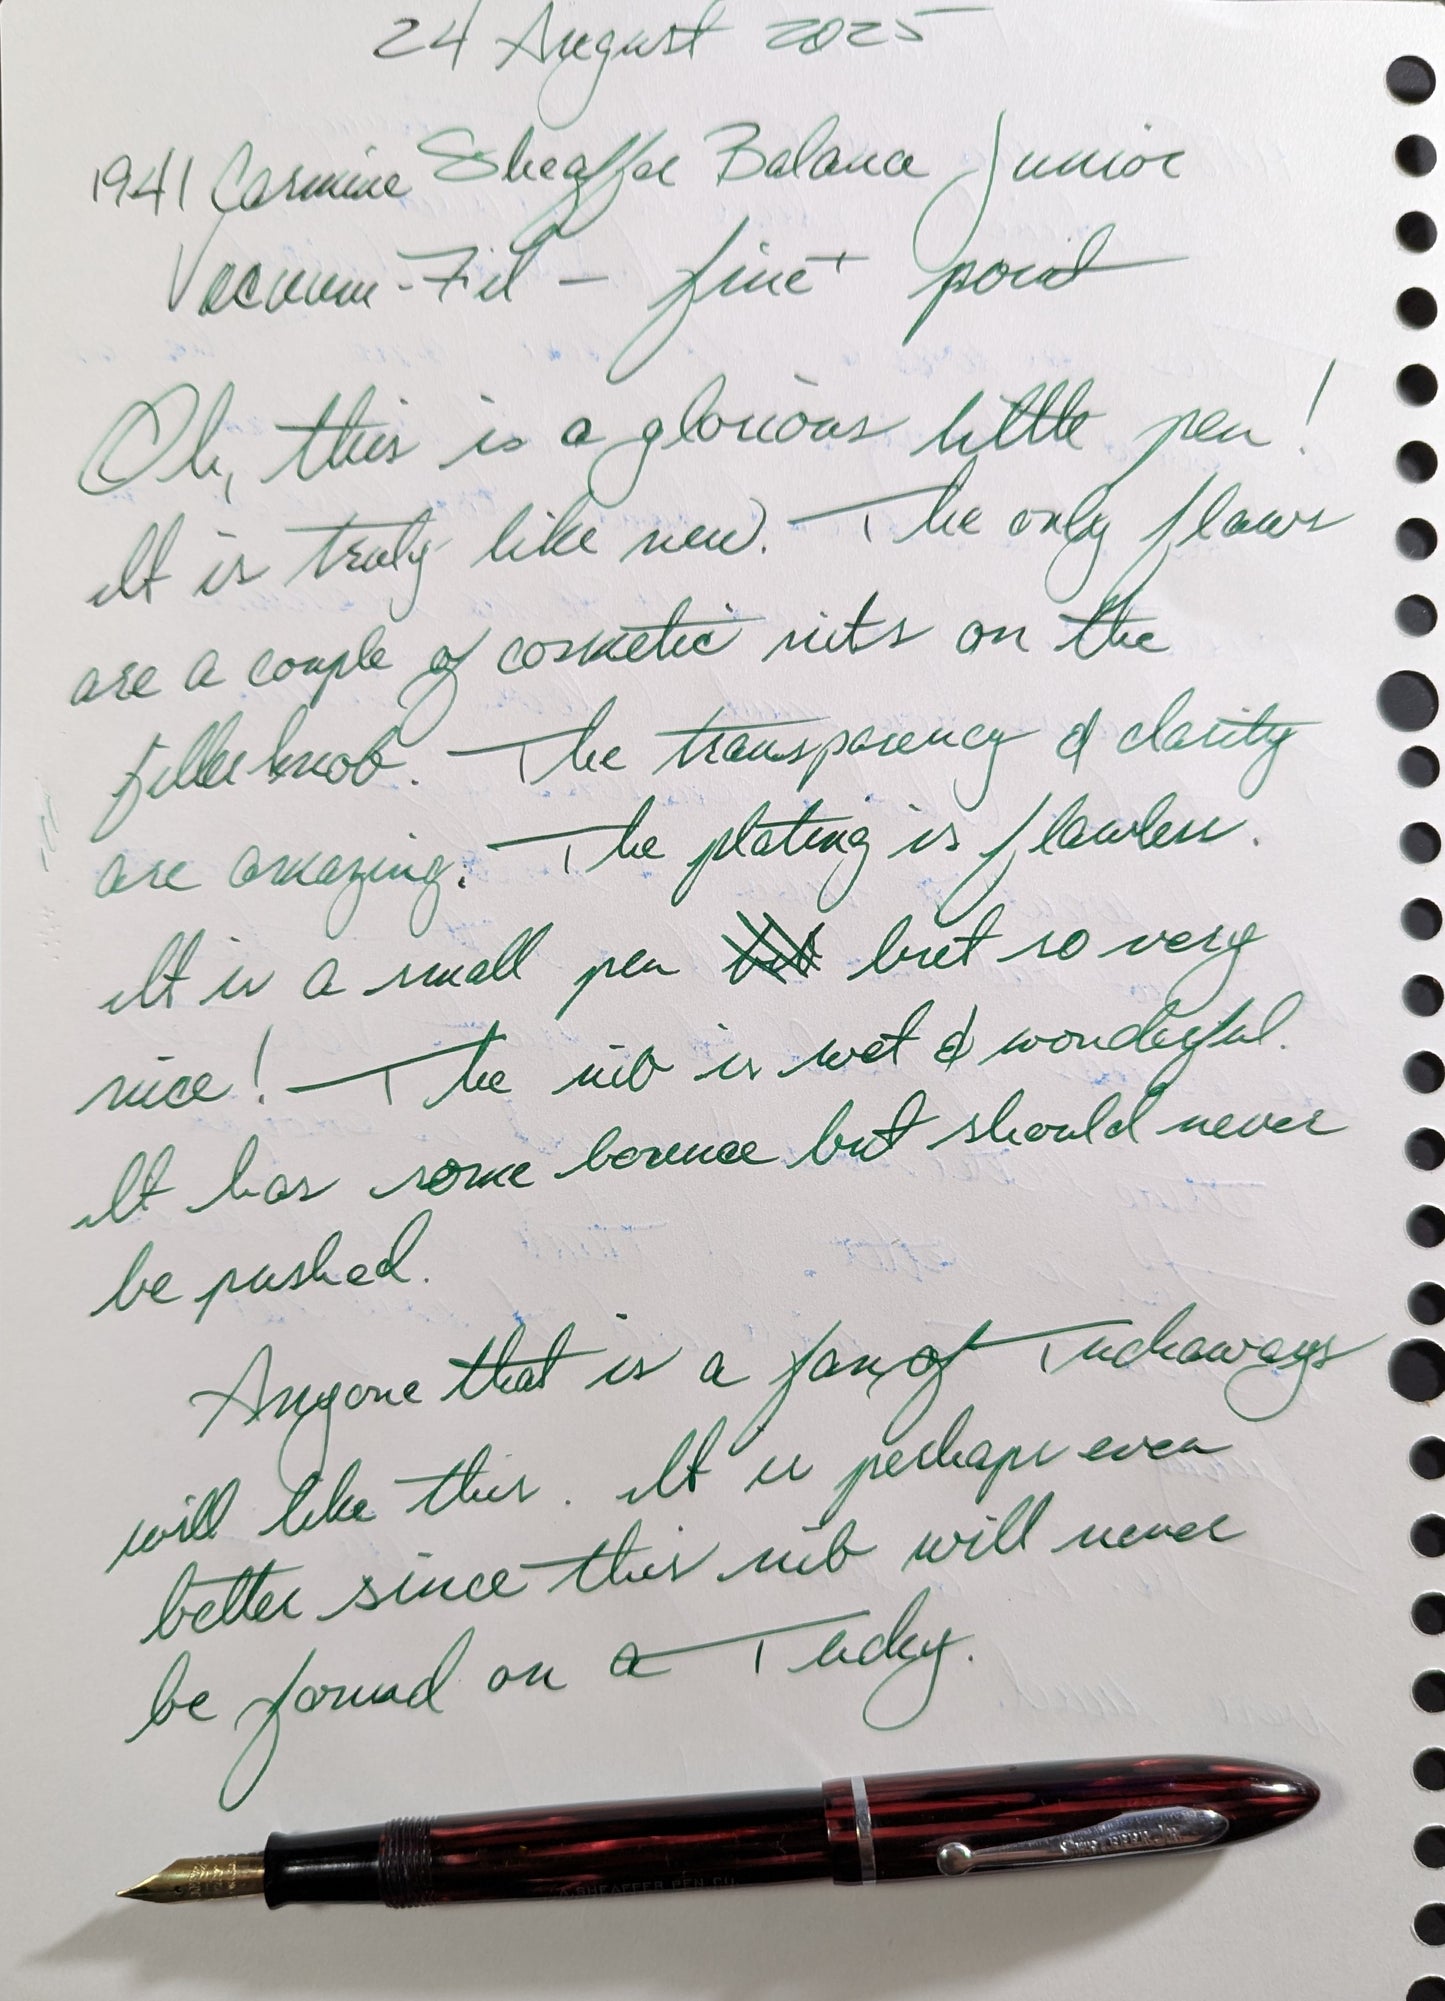 24 August 2025
1941 Carmine Sheaffer Balance Junior
Vacuum-Fil - fine+ point
Oh, this is a glorious little pen!
It is truly like new. The only flaws
are a couple of cosmetic nits on the
filler knob. The transparency & clarity
are amazing. The plating is flawless.
It is a small pen but so very
nice! The nib is wet & wonderful.
It has some bounce but should never
be pushed.
Anyone that is a fan of Tuckaways
will like this. It is perhaps even
better since this nib will never
be found on a Tucky.
SHEAFFER PEN CO.